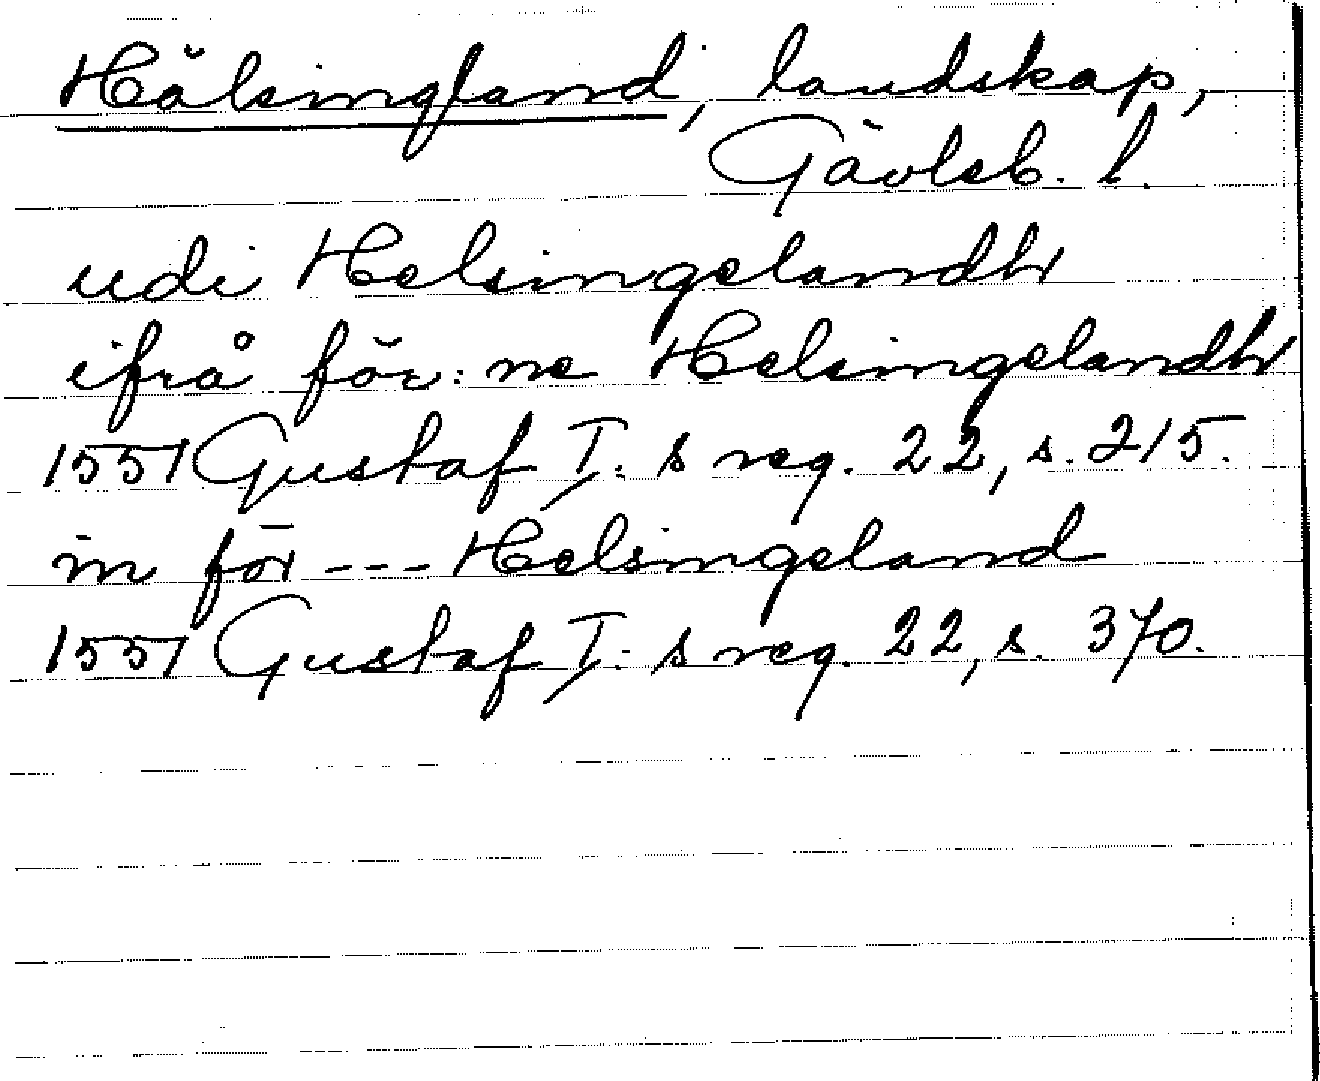 Hälsingland, landskap,
Gävleb. l.
udi Helsingelandh
ifrå för:ne Helsingelandh
1551 Gustaf I:s reg. 22, s. 215.
in för --- Helsingeland
1551 Gustaf I:s reg. 22, s. 370.